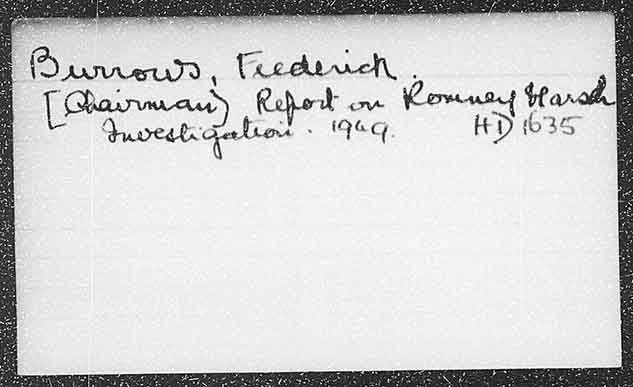 Burrows, Frederick.
[Chairman) Report on Romney Marsh
Investigation. 1949. HD 1635